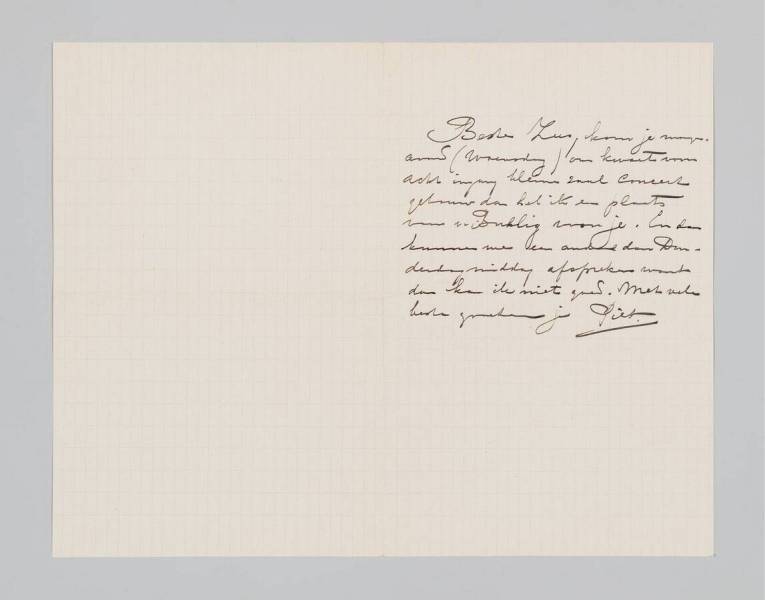 Beste Zus, kom je morgen-
avond (Woensdag) om kwart voor
acht ingang kleine zaal Concert
gebouw dan heb ik een plaats
van v. Buhlig voor je. En dan
kunnen we een andere dan Don-
derdagmiddag afspreken want
dan kan ik niet goed. Met vele
beste groeten je Piet.